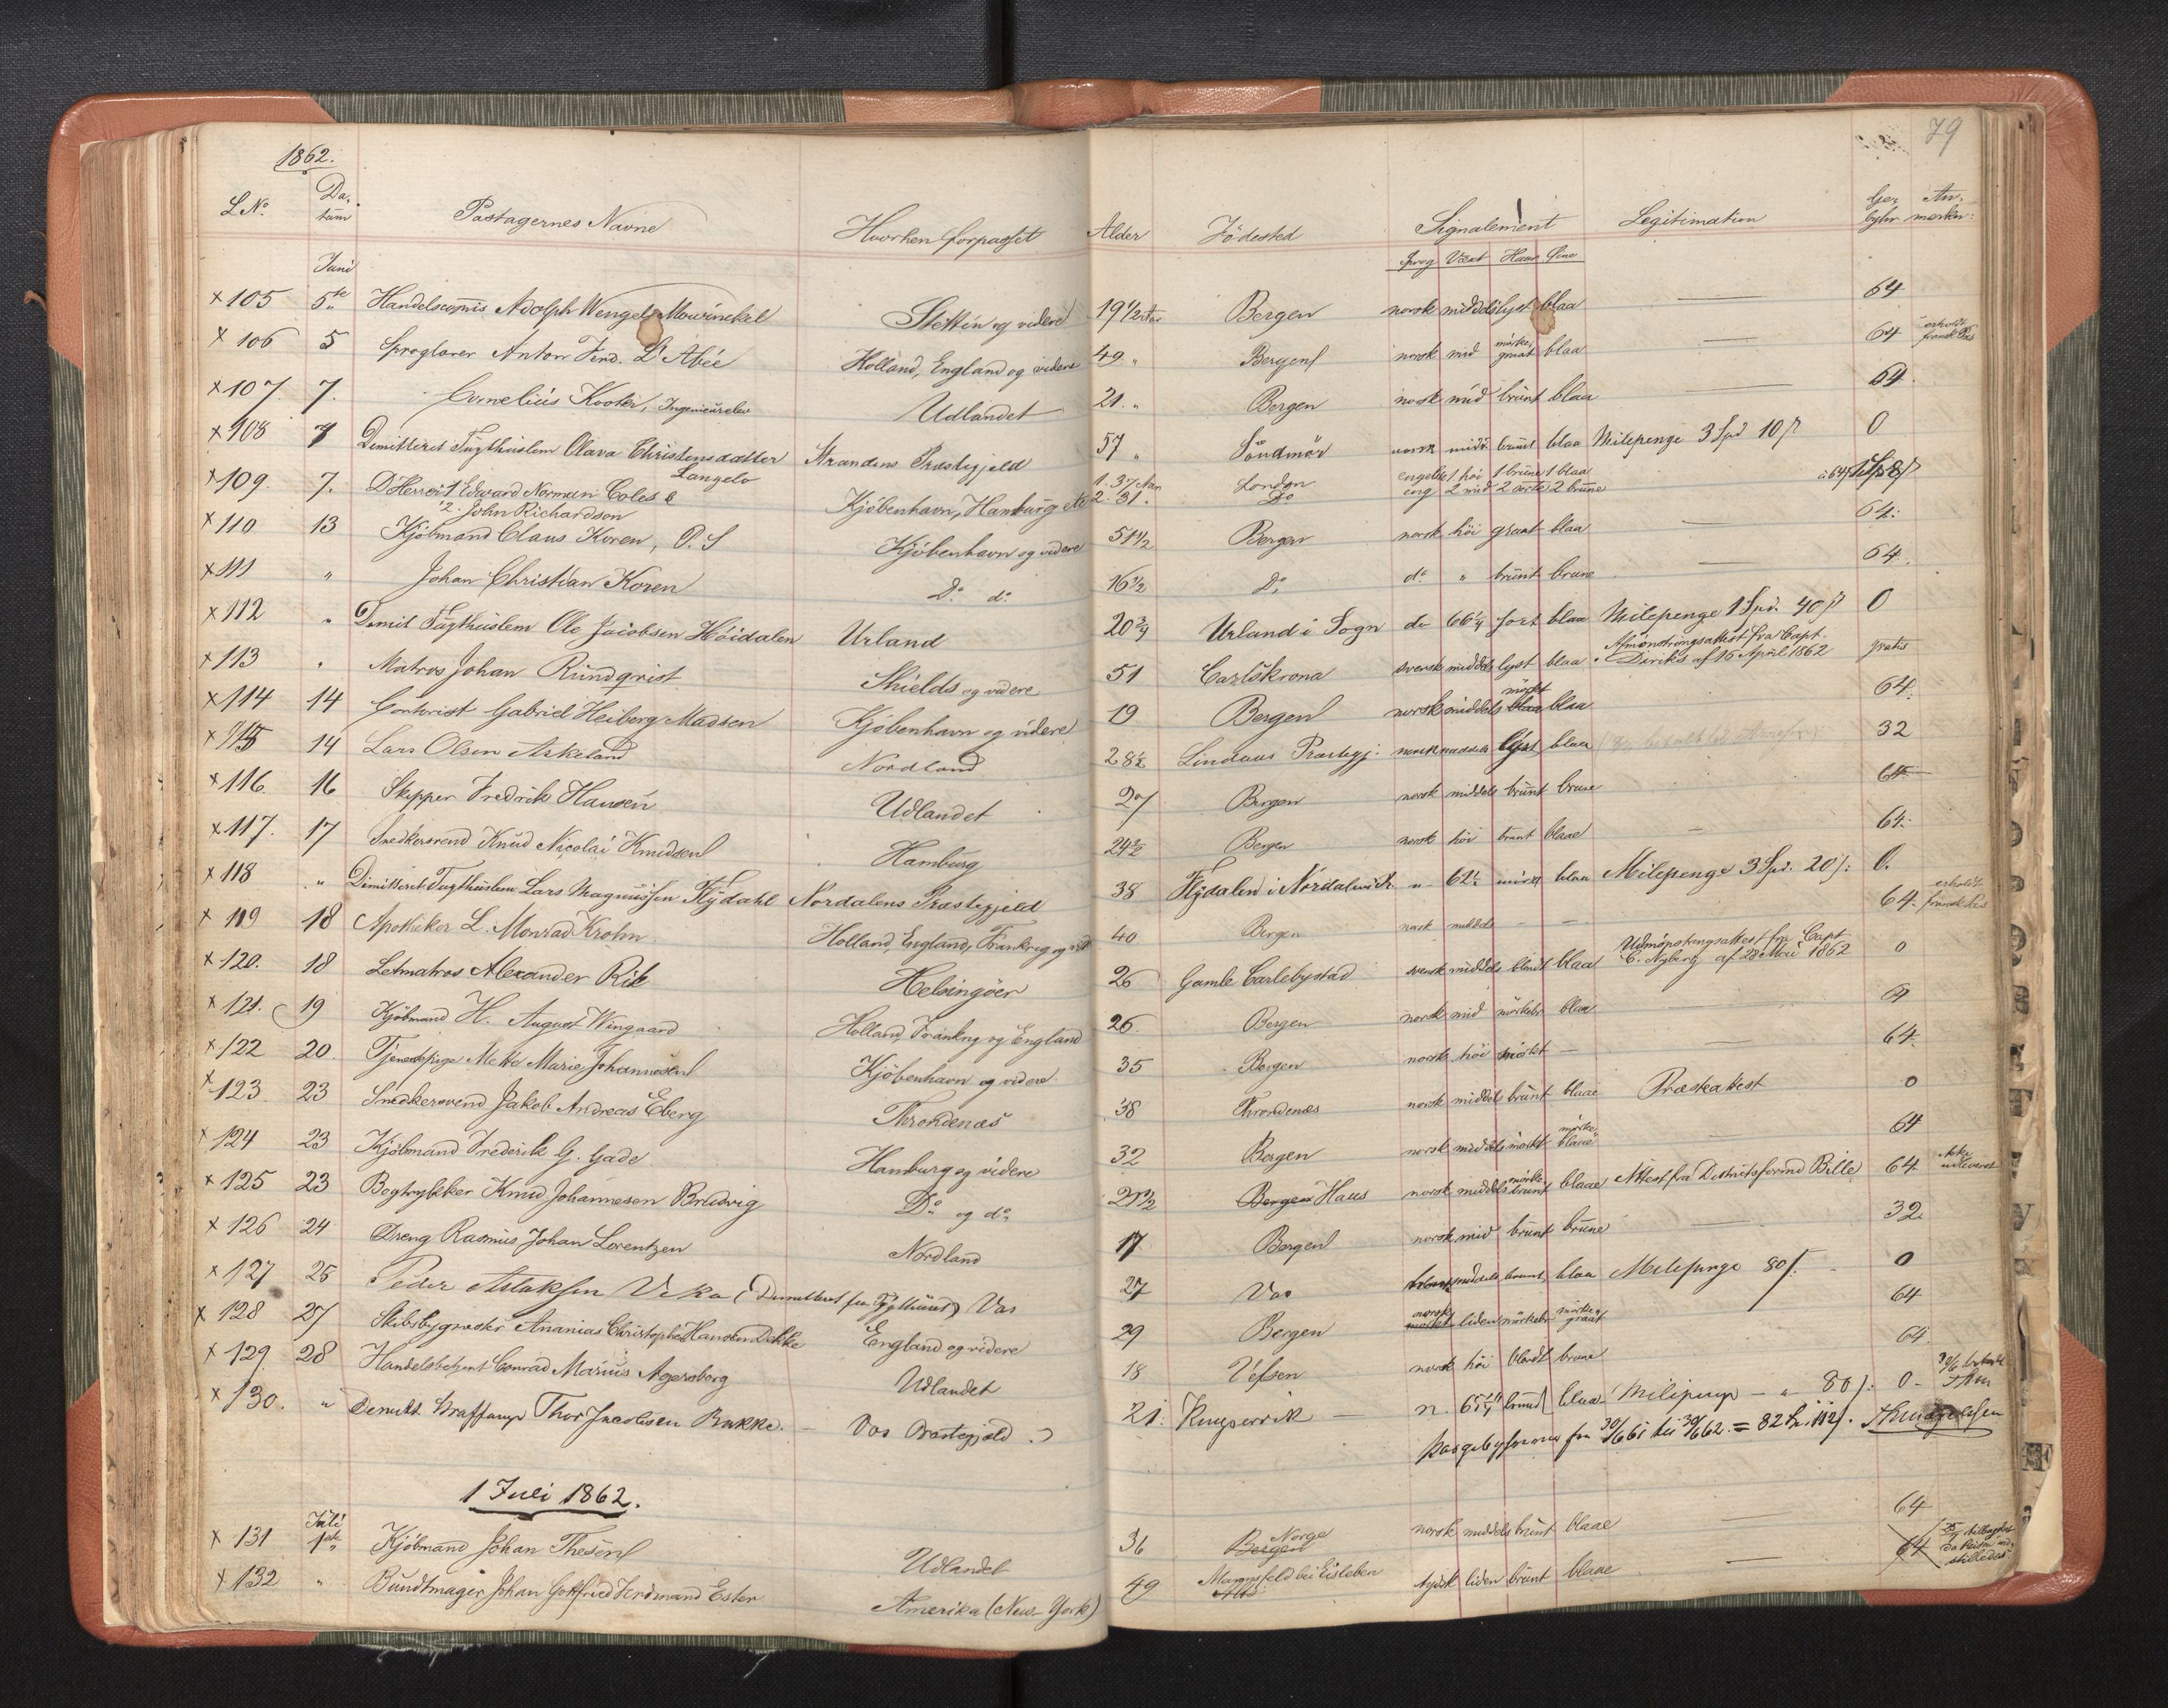 79
1862.
L.No. Datum Passagernes Navne Hvorhen forpasset Alder Födested Signalement Legitimation Gebyhr Anmærkn:
Sprog Væxt Haar Öine
Juni
x 105 5te Handelscomis Adolph Wengel Mowinckel Stettin og videre 19 1/2 Aar Bergen norsk middels lyst blaa — 64
x 106 5 Sproglærer Anton Ferd. L'Abée Holland, England og videre 49 " Bergen norsk mid mörke, graat blaa — 64 erholdt fransk Pas
x 107. 7. Cornelius Kooter, Ingenieurelev Udlandet 21. " Bergen norsk mid brunt blaa — 64.
x 108 7 Dimitteret Tugthuslem Olava Christensdatter Langelo Strandens Præstegjeld 57 " Söndmör norsk midd. brunt blaa Milepenge 3 Spd 10 β 0
x 109. 7. D'Herrer 1. Edward Norman Coles & Kjöbenhavn, Hamburg etc 1. 37 Aar London engelsk 1 höi 1 brune 1 blaa
2. John Richardson 2. 31. Do eng 2 mid 2 sorte 2 brune
x 110 13 Kjöbmand Claus Koren, O. S Kjöbenhavn og videre 51 1/2 Bergen norsk höi graat blaa — 64.
x 111 " Johan Christian Koren Do. do. 16 1/2 Do do. " brunt brune — 64.
x 112 " Dimit Tugthuslem Ole Jacobsen Höidalen Urland 20 3/4 Urland i Sogn do 66 1/4 sort blaa Milepenge 1 Spd. 40 β 0
x 113 " Matros Johan Rundqvist Shields og videre 51 Carlskrona svensk middels lyst blaa Afmönstringsattest fra Capt. Dircks af 16 April 1862 gratis
x 114 14 Contorist Gabriel Heiberg Madsen Kjöbenhavn og videre 19 Bergen norsk middels mörkt blaa 64.
x 115 14 Lars Olsen Askeland Nordland 28 1/2 Lindaas Præstegj. norsk middels lyst blaa 32
x 116. 16 Skipper Fredrik Hansen Udlandet 27 Bergen norsk middels brunt brune 64.
x 117. 17 Snedkersvend Knud Nicolai Knudsen Hamburg 24 1/2 Bergen norsk höi brunt blaae — 64.
x 118 " Dimitteret Tugthuslem Lars Magnussen Flydahl Nordalens Præstegjeld 38 Flydalen i Nordalen " 62 1/2 blaa Milepenge 3 Spd. 20 β: 0.
x 119 18 Apotheker L. Monrad Krohn Holland, England, Frankrig og vid 40 Bergen norsk middels — — 64. erholdt fransk Pas
x 120. 18 Letmatros Alexander Rik Helsingöer 26 Gamle Carlebystad svensk middels blondt blaa Udmönstringsattest fra Capt C. Nyberg af 28 Mai 1862 0
x 121. 19 Kjöbmand H. August Wingaard Holland, Frankrig og England 26. Bergen norsk mid mörkebr blaa — 64
x 122 20 Tjenestepige Mette Marie Johannesen Kjöbenhavn og videre 35 Bergen norsk höi mörkt — — 64.
x 123 23 Snedkersvend Jakob Andreas Eberg Throndenæs 38 Throndenæs norsk middels brunt blaae Præsteattest 0
x 124 23 Kjöbmand Frederik G. Gade Hamburg og videre 32 Bergen norsk middels mörkt mörke blaae — 64
x 125 23 Bogtrykker Knud Johannesen Bradvig Do og do 21 1/2 Bergen Haus norsk middels mörke brunt blaae Attest fra Districtsformd Bille 64 Ikke udleveret
x 126 24 Dreng Rasmus Johan Lorentzen Nordland 17 Bergen norsk mid brunt brune — 32.
x 127 25 Peder Aslaksen Veka (Dimitteret fra Tugthuset) Vos 27 Vos middels brunt, blaa Milepenge 80 β. 0
x 128 27 Skibsbygmester Ananias Christopher Hansen Dekke England og videre 29 Bergen norsk liden mörkebr mörke graat 64
x 129. 28 Handelsbetjent Conrad Marius Agersborg Udlandet 18 Vefsen norsk höi blondt brune 64.
x 130. " Demitt. Straffange Thor Jacobsen Bakke. — Vos Præstegjæld 21: Kingservik — n. 65 1/4 brunt blaa Milepenge — " 80 β: 0 -
Pasgebyhrerne fra 30/6 61 til 30/6 62. = 82 112 β.
1 Juli 1862.
Juli
x 131 1ste Kjöbmand Johan Thesen Udlandet 36 Bergen Norge norsk middels brunt blaae — 64
x 132 " Bundtmager Johan Gottfried Ferdinand Ester Amerika (New-York) 49 Mansfeld bei Eisleben tydsk liden brunt blaae — 64